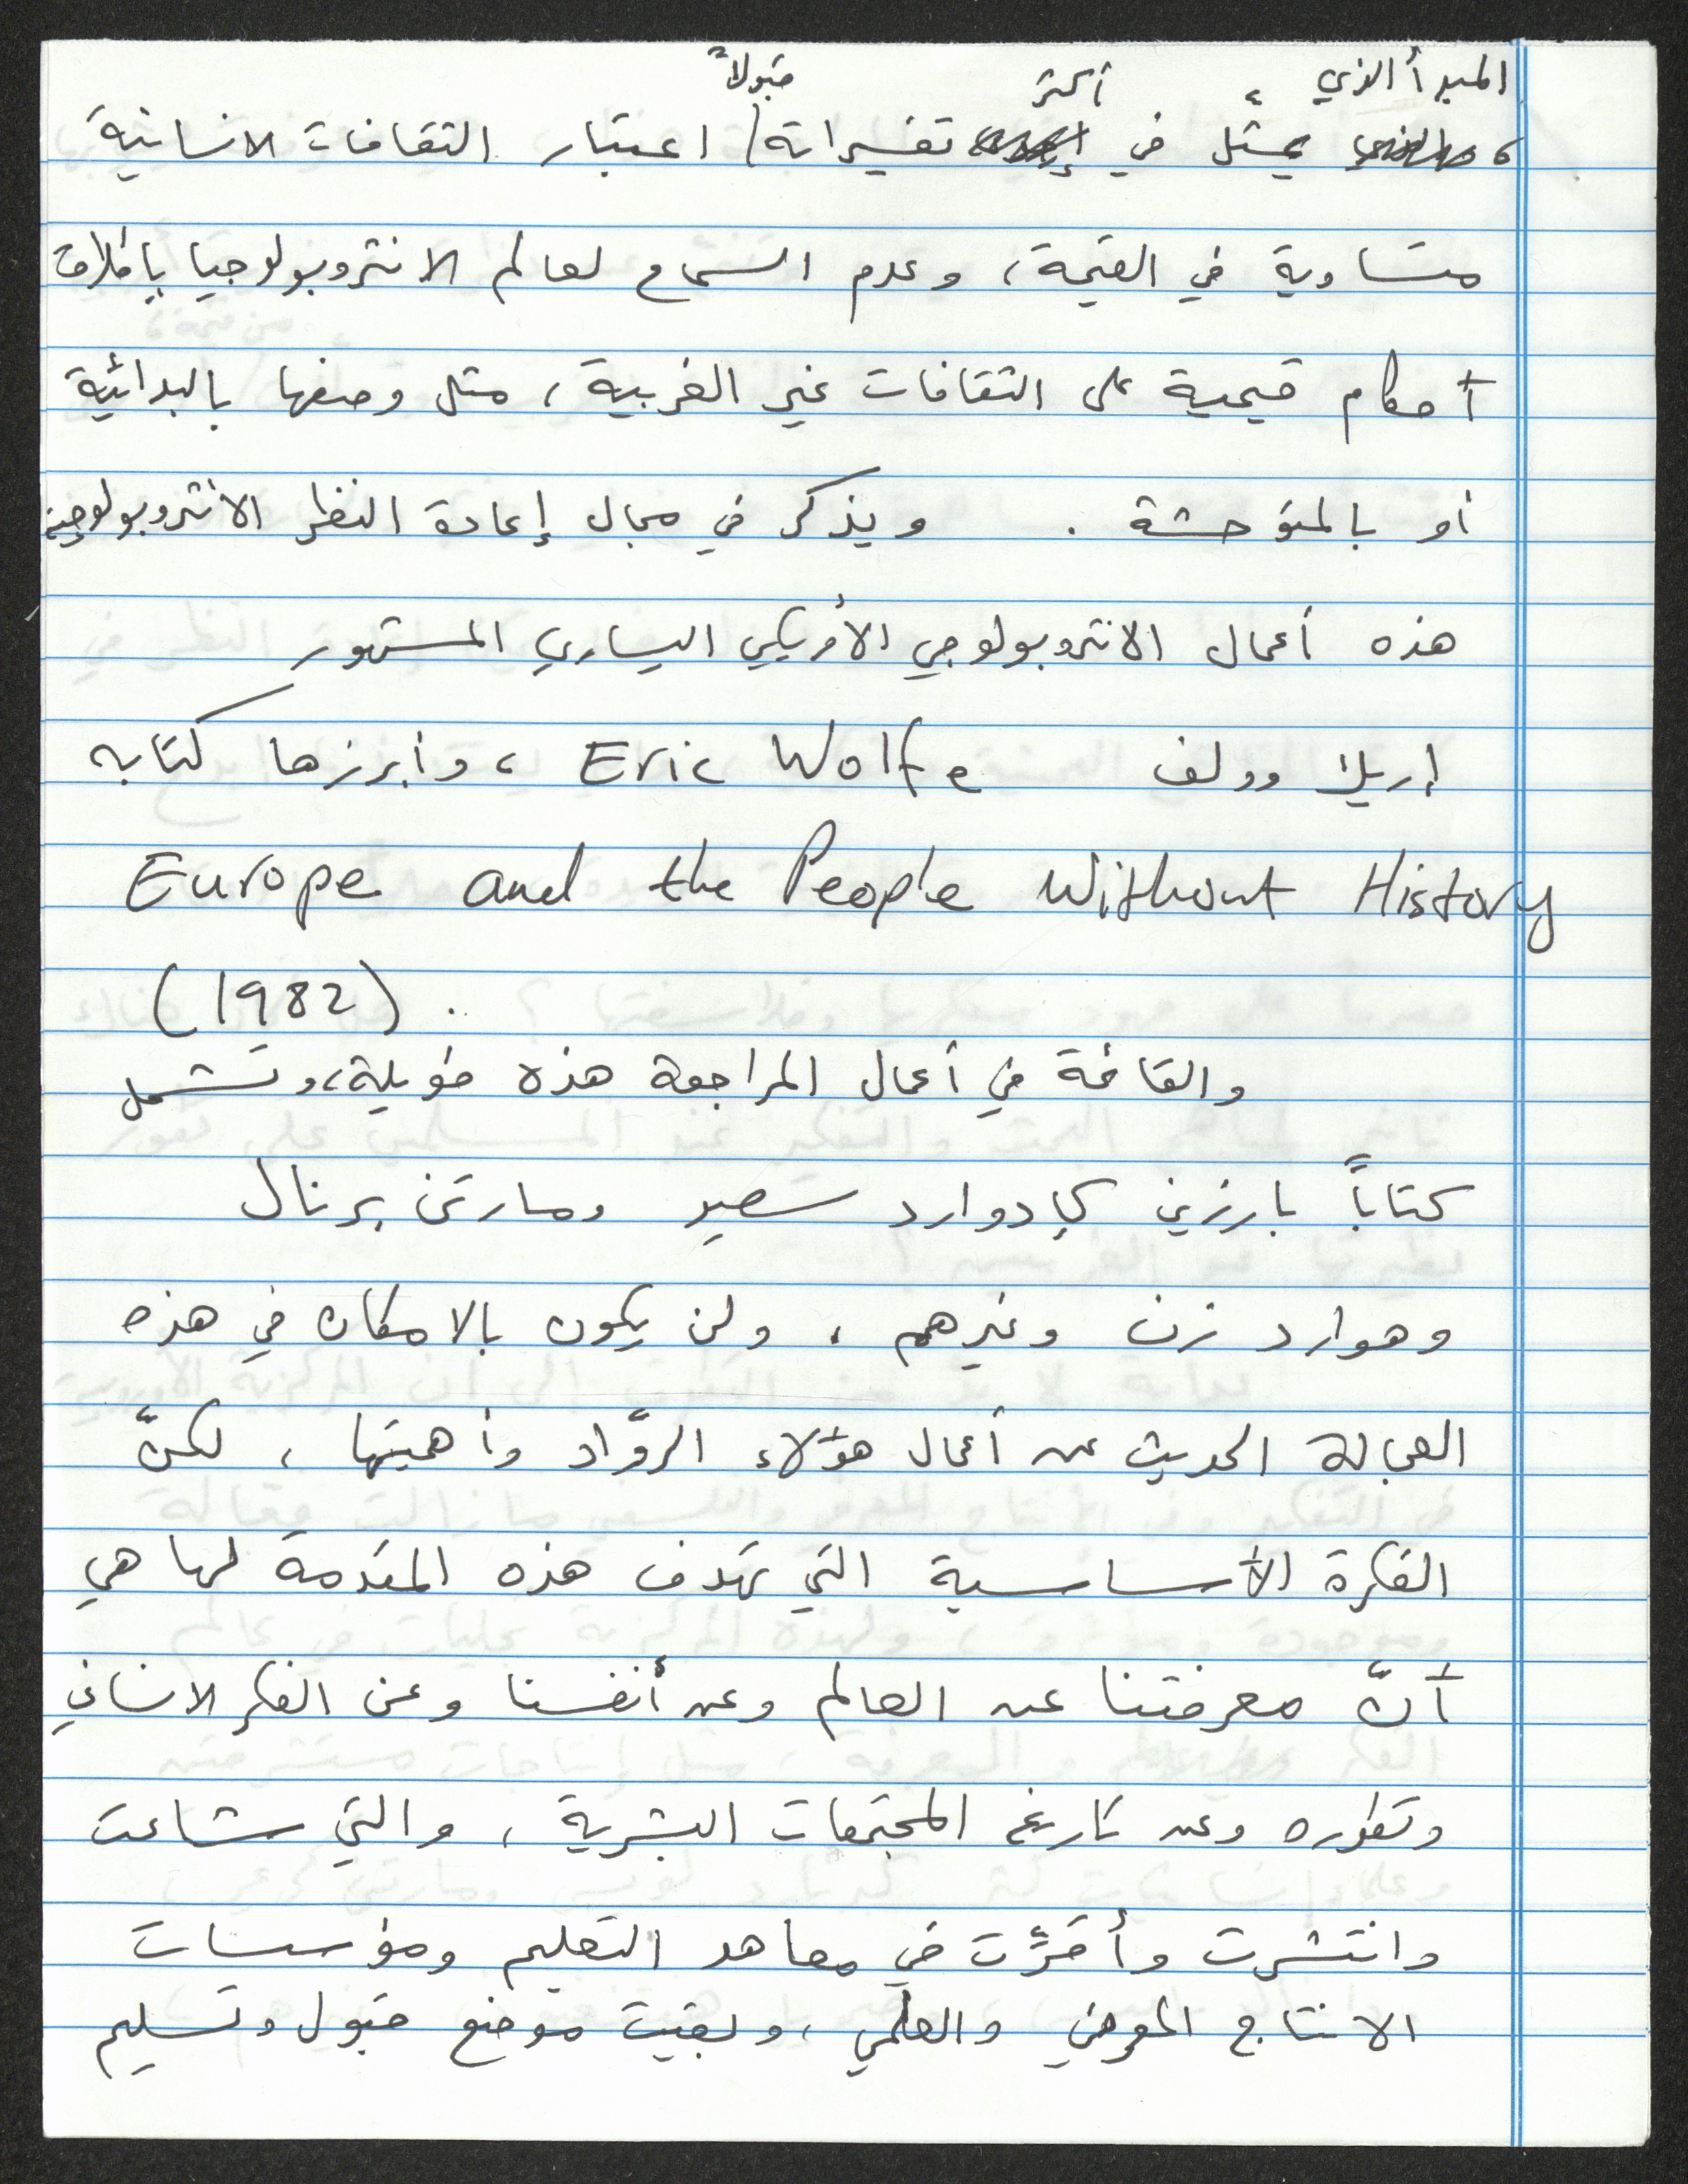 المبدأ الذي ، أكثر قبولاً
، يمثل في تفسيراته اعتبار الثقافات الانسانية
متساوية في القيمة، وعدم السماح لعالم الانثروبولوجيا بإطلاق
أحكام قيمية على الثقافات غير الغربية، مثل وصفها بالبدائية
أو بالمتوحشة . ويذكر في مجال إعادة النظر الانثروبولوجية
هذه أعمال الانثروبولوجي الأمريكي اليساري المشهور
إريك وولف Eric Wolfe ، وأبرزها كتابه
Europe and the People Without History
(1982) .
والقائمة في أعمال المراجعة هذه طويلة، وتشمل
كتاباً بارزين كإدوارد سعيد ومارتن برنال
وهوارد زن وغيرهم ، ولن يكون بالامكان في هذه
العجالة الحديث عن أعمال هؤلاء الروّاد وأهميتها ، لكنّ
الفكرة الأساسية التي تهدف هذه المقدمة لها هي
أنّ معرفتنا عن العالم وعن أنفسنا وعن الفكر الانساني
وتطوره وعن تاريخ المجتمعات البشرية ، والتي شاعت
وانتشرت وأقرّت في معاهد التعليم ومؤسسات
الانتاج المعرفي والعلمي ، وبقيت موضع قبول وتسليم